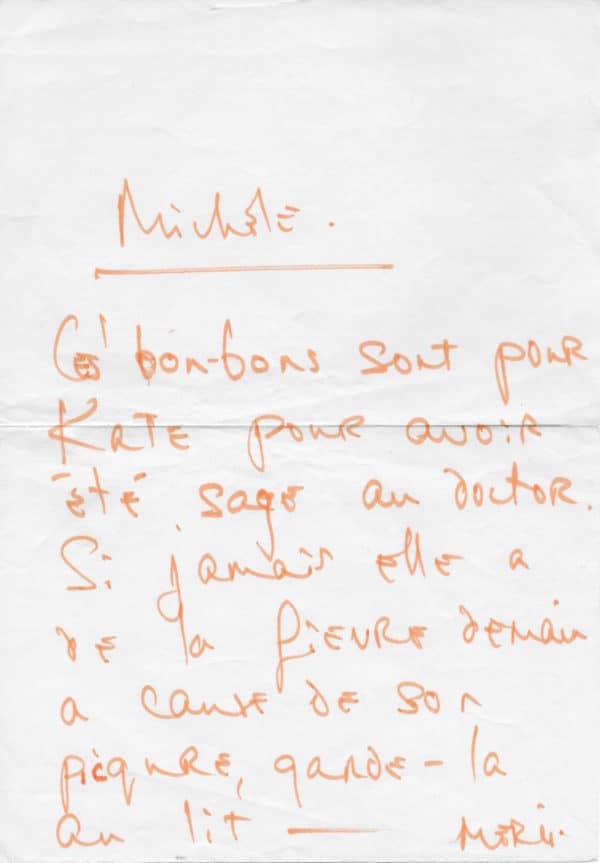 Michèle.
Ces bon-bons sont pour
Kate pour avoir
été sage au doctor.
Si jamais elle a
de la fièvre demain
a cause de son
picqure, garde-la
au lit — merci.